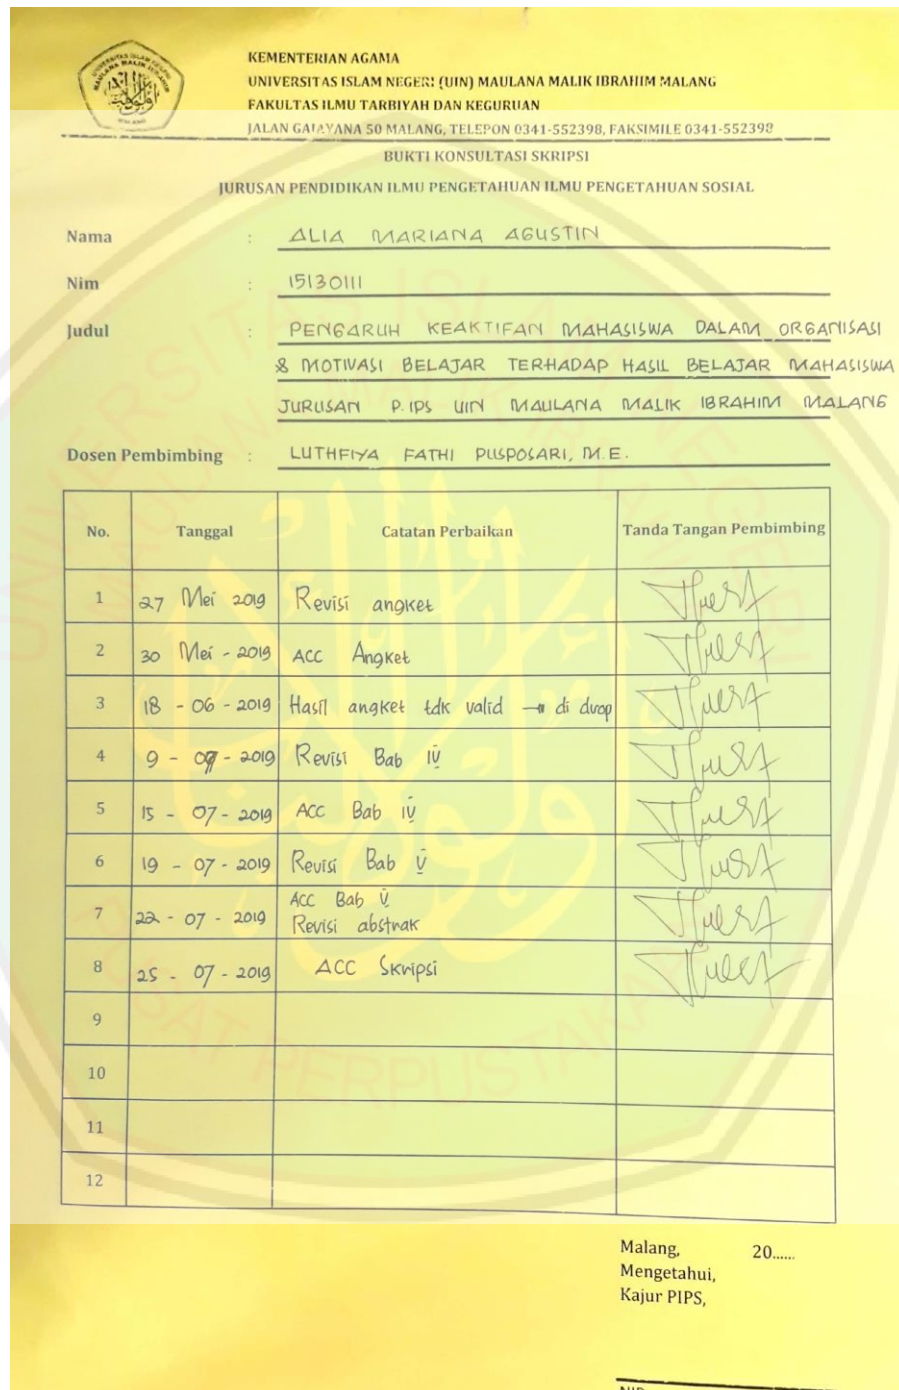 KEMENTERIAN AGAMA
UNIVERSITAS ISLAM NEGERI (UIN) MAULANA MALIK IBRAHIM MALANG
FAKULTAS ILMU TARBIYAH DAN KEGURUAN
JALAN GAJAYANA 50 MALANG, TELEPON 0341-552398, FAKSIMILE 0341-552398
BUKTI KONSULTASI SKRIPSI
JURUSAN PENDIDIKAN ILMU PENGETAHUAN ILMU PENGETAHUAN SOSIAL
Nama : ALIA MARIANA AGUSTIN
Nim : 15130111
Judul : PENGARUH KEAKTIFAN MAHASISWA DALAM ORGANISASI
& MOTIVASI BELAJAR TERHADAP HASIL BELAJAR MAHASISWA
JURUSAN P. IPS UIN MAULANA MALIK IBRAHIM MALANG
Dosen Pembimbing : LUTHFIYA FATHI PUSPOSARI, M.E.
No. Tanggal Catatan Perbaikan Tanda Tangan Pembimbing
1 27 Mei 2019 Revisi angket
2 30 Mei - 2019 ACC Angket
3 18 - 06 - 2019 Hasil angket tdk valid → di drop
4 9 - 07 - 2019 Revisi Bab IV
5 15 - 07 - 2019 ACC Bab IV
6 19 - 07 - 2019 Revisi Bab V
7 22 - 07 - 2019 ACC Bab V
Revisi abstrak
8 25 - 07 - 2019 ACC Skripsi
9
10
11
12
Malang, 20......
Mengetahui,
Kajur PIPS,